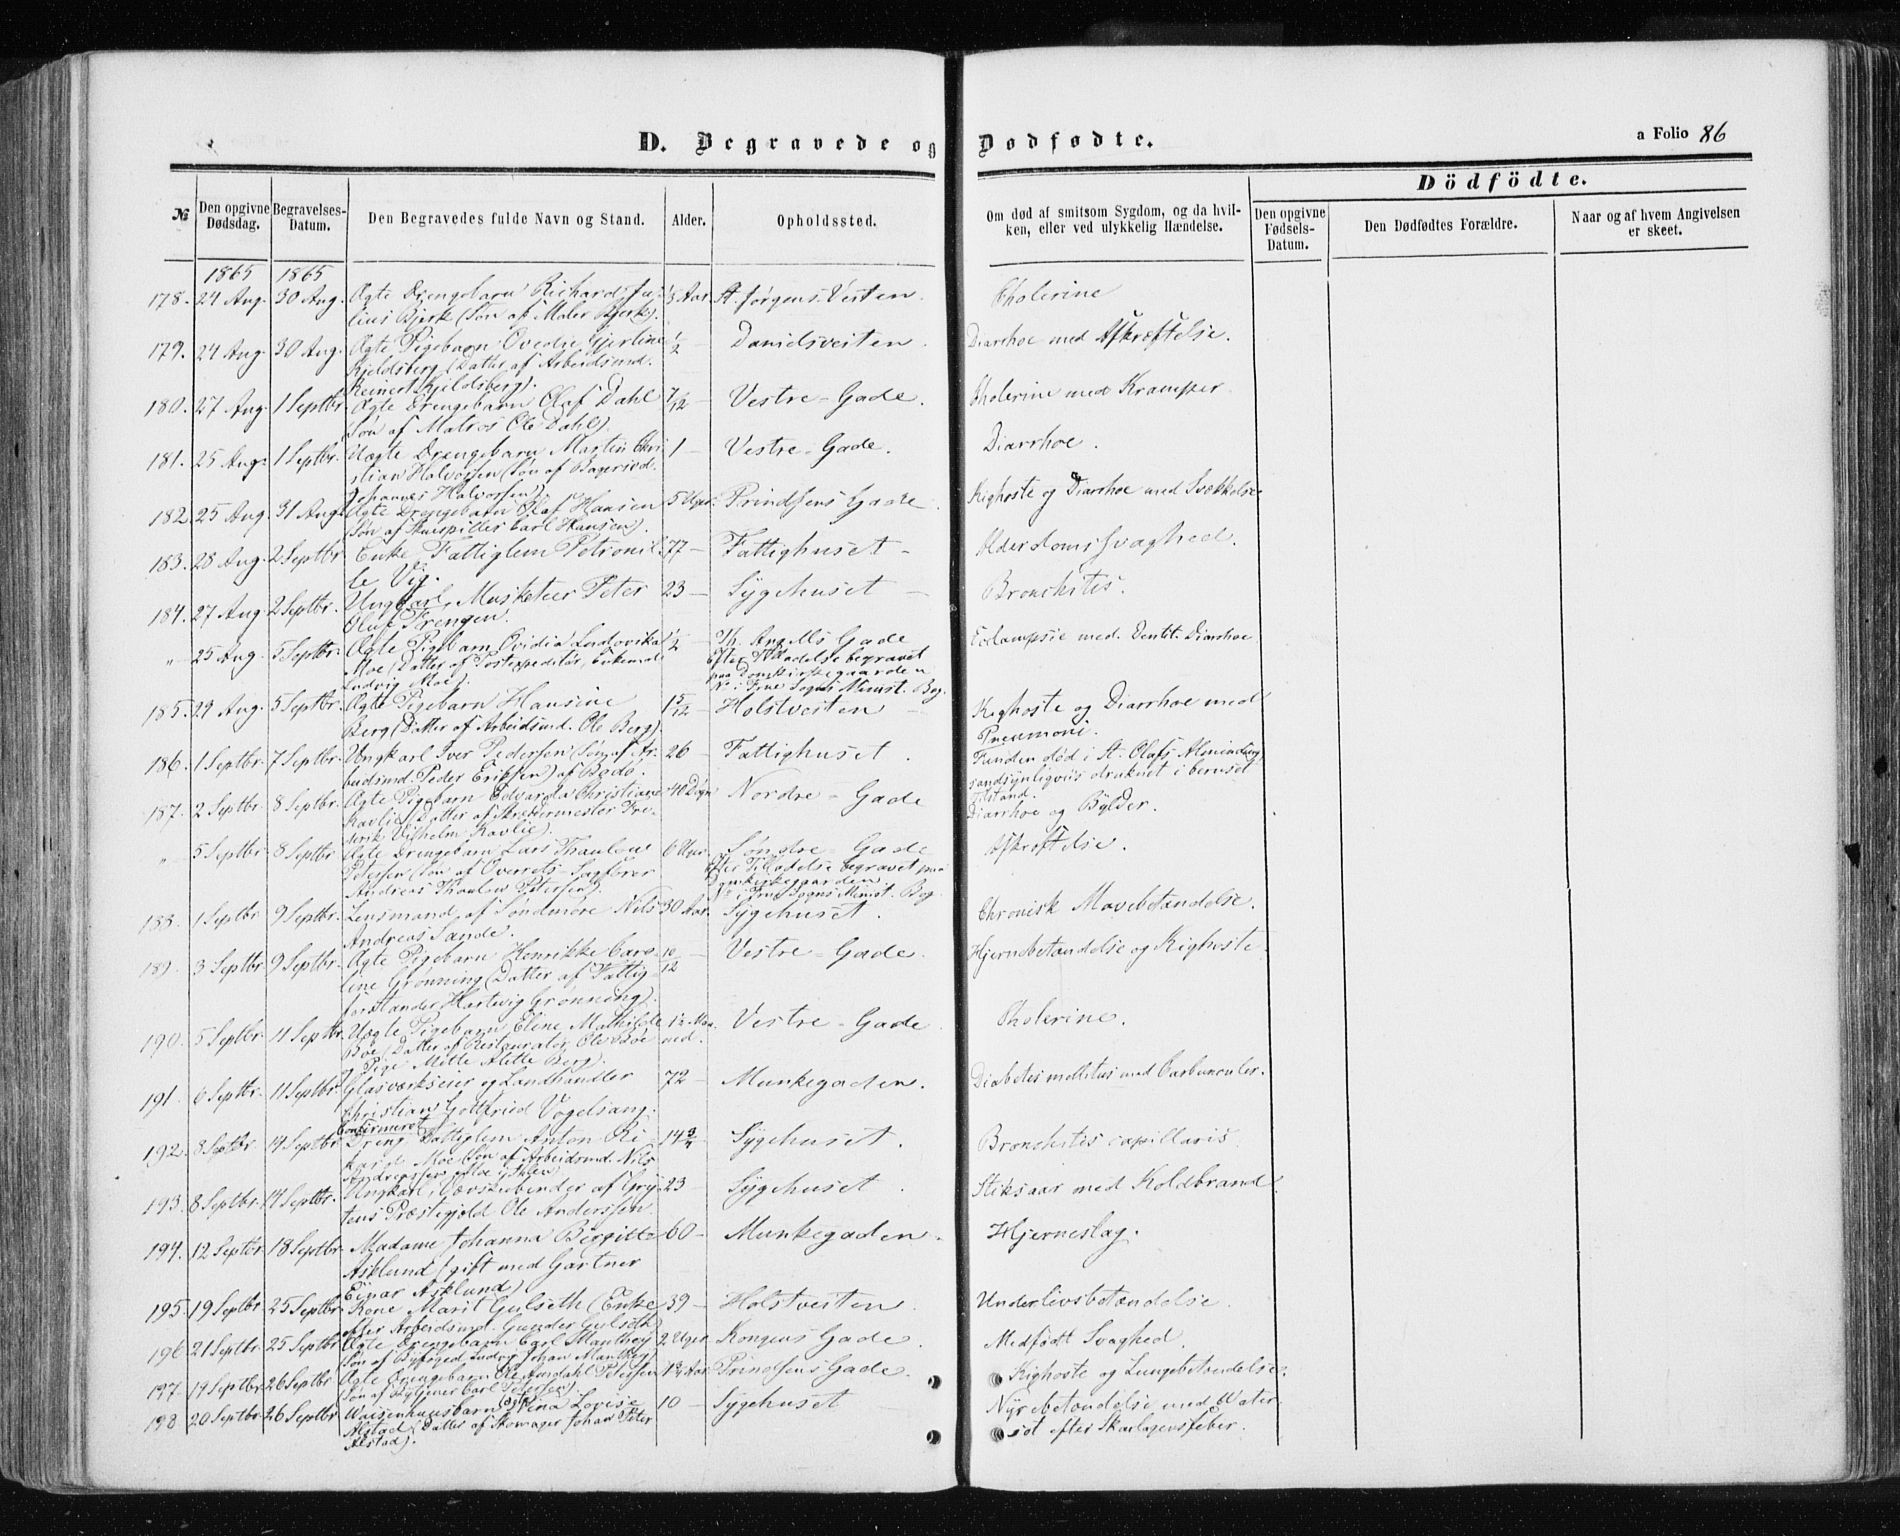 D. Begravede og Dødfødte.
a Folio 86
Dödfödte.
№
Den opgivne Dødsdag.
Begravelses-Datum.
Den Begravedes fulde Navn og Stand.
Alder.
Opholdssted.
Om død af smitsom Sygdom, og da hvilken, eller ved ulykkelig Hændelse.
Den opgivne Fødsels-Datum.
Den Dødfødtes Forældre.
Naar og af hvem Angivelsen er skeet.
1865 1865
178. 24 Aug. 30 Aug. Ægte Drengebarn Richard Ju- Aar. St. Jørgens Veiten. Cholerine
lius Bjerk (Søn af Maler Bjerk).
179. 24 Aug. 30 Aug. Ægte Pigebarn Ovedie Gjertine ½ — Danielsveiten. Diarrhoe med Afkræftelse.
Kjeldsberg (Datter af Arbeidsmd.
Reinert Kjeldsberg).
180. 27 Aug. 1 Septbr. Ægte Drengebarn Olaf Dahl 7/12 — Vestre-Gade. Cholerine med Kramper.
(Søn af Matros Ole Dahl).
181. 25 Aug. 1 Septbr. Uægte Drengebarn Martin Chri- 1 — Vestre-Gade. Diarrhoe.
stian Halvorsen (Søn af Bagersvd.
Johannes Halvorsen).
182. 25 Aug. 31 Aug. Ægte Drengebarn Olaf Hansen 5 Uger. Prindsens Gade. Kighoste og Diarrhoe med Svækkelse
(Søn af Skuespiller Carl Hansen).
183. 28 Aug. 2 Septbr. Enke Fattiglem Petronil- 77 — Fattighuset — Alderdomssvaghed.
le Vig.
184. 27 Aug. 2 Septbr. Ungkarl, Musketeer Peter 23 — Sygehuset — Bronchitis.
Oluf Prengen.
" 25 Aug. 5 Septbr. Ægte Pigebarn Ovidia Ludovika ½ — Th. Angells Gade Eclampsie med Dentit. Diarrhoe
Moe (Datter af Postexpeditør, Enkemd. Efter Tilladelse begravet
Ludvig Moe). paa Domkirkegaarden
№ i Frue Sogns Minist. Bog.
185. 29 Aug. 5 Septbr. Ægte Pigebarn Hansine 1 5/12 Holstveiten — Kighoste og Diarrhoe med
Berg (Datter af Arbeidsmd. Ole Berg). Pneumoni.
186. 1 Septbr. 7 Septbr. Ungkarl Iver Pedersen (Søn af Ar- 26 — Fattighuset. Funden død i St. Olafs Almindng
beidsmd. Peder Eriksen) af Bodø. sandsynligviis druknet i beruset
Tilstand.
187. 2 Septbr. 8 Septbr. Ægte Pigebarn Edvarda Christiane 40 Døgn Nordre-Gade Diarrhoe og Bylder.
Kavlie (Datter af Skrædermester Fre-
derik Vilhelm Kavlie).
" 5 Septbr. 8 Septbr. Ægte Drengebarn Lars Thaulow 6 Uger. Søndre-Gade Afkræftelse.
Petersen (Søn af Overrets-Sagfører Efter Tilladelse begravet paa
Andreas Thaulow Petersen). Domkirkegaarden
№ i Frue Sogns Minist. Bog.
188. 1 Septbr. 9 Septbr. Lensmand af Søndmøre Nils 30 Aar. Sygehuset. Chronisk Mavebetændelse.
Andreas Sande.
189. 3 Septbr. 9 Septbr. Ægte Pigebarn Henrikke Caro- 10/12 — Vestre-Gade. Hjernebetændelse og Kighoste
line Grønning (Datter af Fattig-
forstander Hartvig Grønning).
190. 5 Septbr. 11 Septbr. Uægte Pigebarn Eline Mathilde 1½ Maa- Vestre-Gade. Cholerine.
Boe (Datter af Restauratør Ole Boe ned.
& Pige Mette Mette Berg).
191. 6 Septbr. 11 Septbr. Glasværkseier og Landhandler 72 — Munkegaden. Diabetes mellitus med Carbunculer.
Christian Gottfried Vogelsang.
Confirmeret
192. 8 Septbr. 14 Septbr. Dreng Fattiglem Anton Ri- 14 3/4 Sygehuset. Bronchitis capillaris
kard Moe (Søn af Arbeidsmd. Nils
Andreassen Moe i Ihlen).
193. 8 Septbr. 14 Septbr. Ungkarl, Vævskebinder af Gry- 23 — Sygehuset. Stiksaar med Koldbrand
tens Præstegjeld Ole Anderssen
194. 12 Septbr. 18 Septbr. Madame Johanna Birgitte 60 — Munkegaden. Hjerneslag.
Asklund (gift med Gartner
Einar Asklund).
195. 19 Septbr. 25 Septbr. Kone Marit Gulseth (Enke 39 — Holstveiten Underlivsbetændelse.
efter Arbeidsmd. Gunder Gulseth).
196. 21 Septbr. 25 Septbr. Ægte Drengebarn Carl Manthey 2 Uger. Kongens Gade. Medfødt Svaghed.
(Søn af Byfoged Ludvig Johan Manthey)
197. 19 Septbr. 26 Septbr. Ægte Drengebarn Ole Aardahl Petersen 1¾ Aar. Prindsens Gade. Kighoste og Lungebetændelse.
(Søn af Carl Petersen).
198. 20 Septbr. 26 Septbr. Waisenhuusbarn (ægte) Nina Lovise 10 — Sygehuset Nyrebetændelse med Vater
Alstad (Datter af Skomager Johan Peter sot efter Skarlagensfeber.
Alstad).